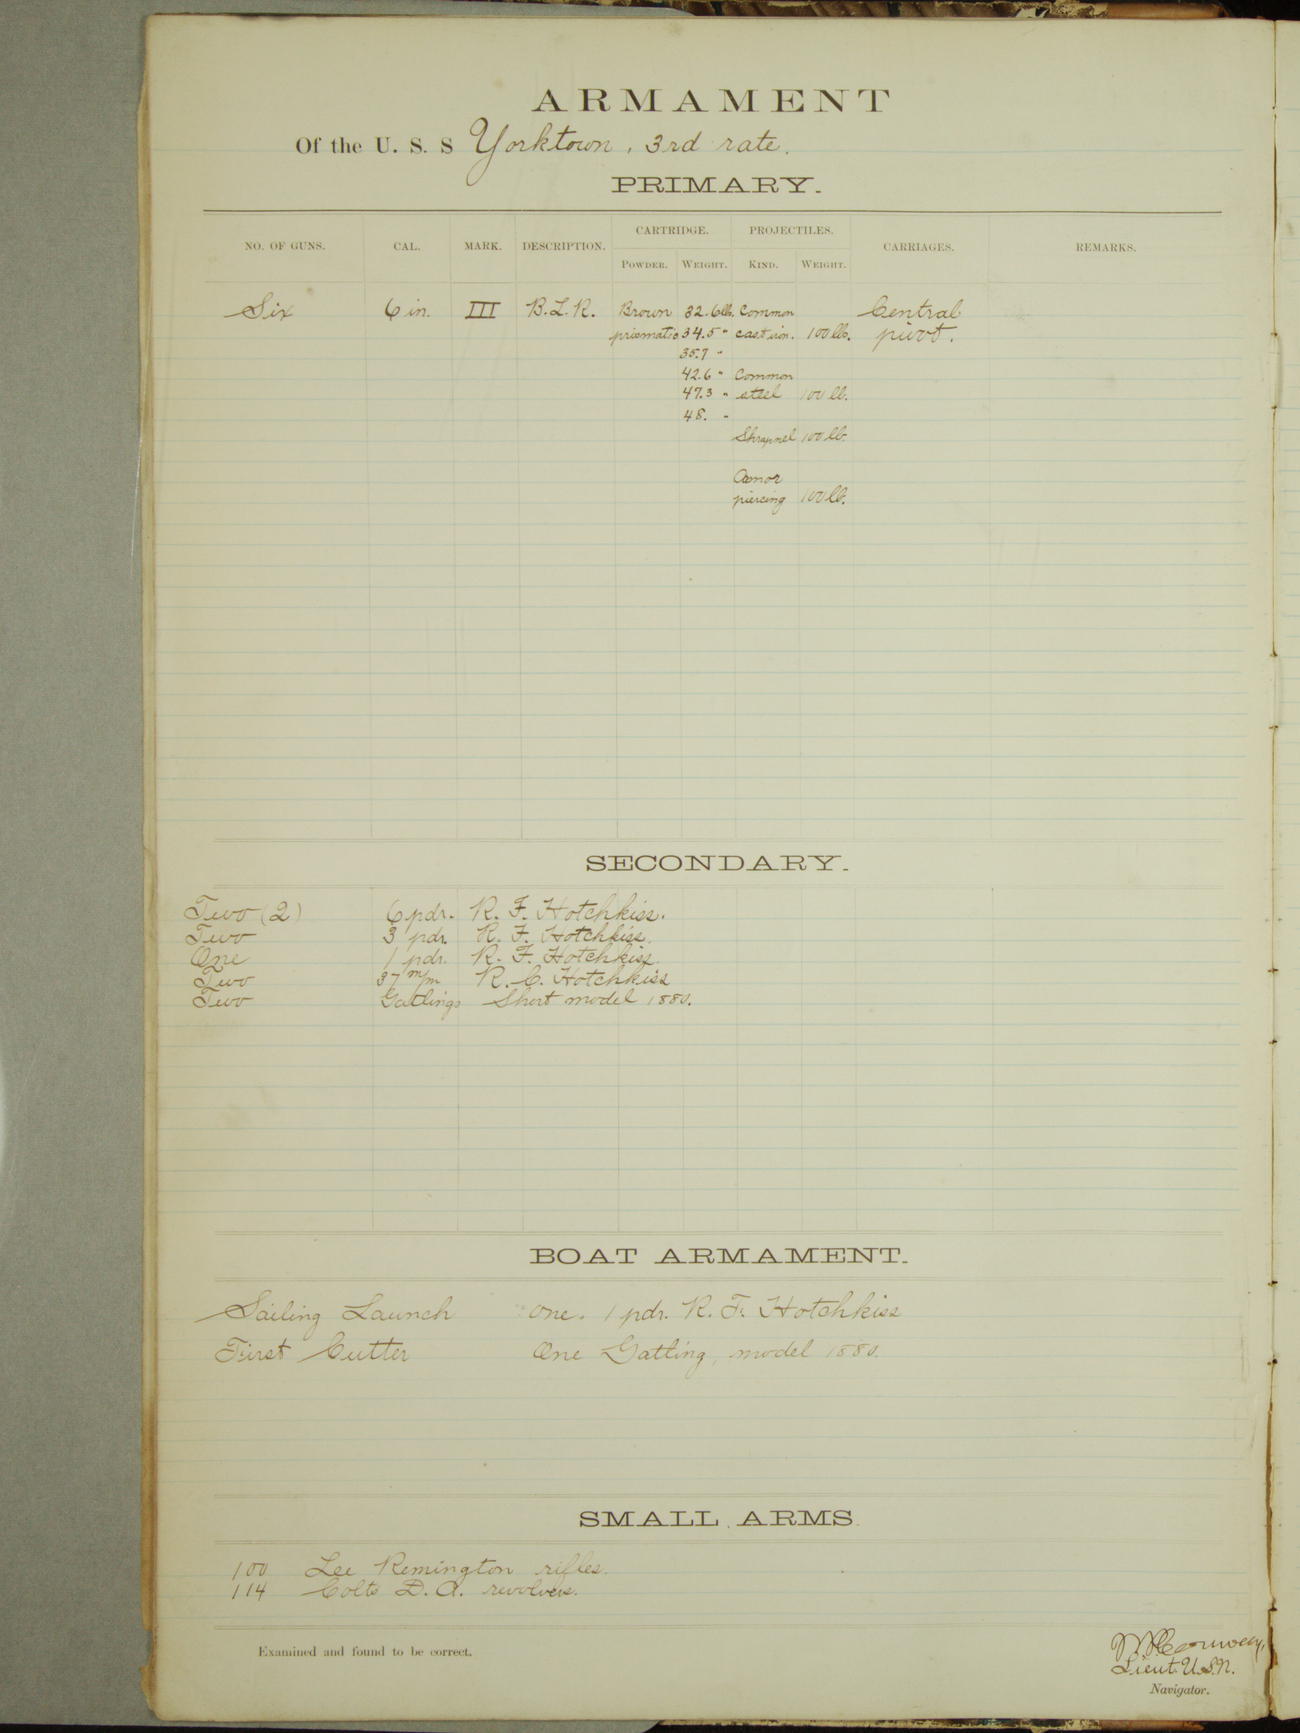 ARMAMENT
Of the U. S. S Yorktown, 3rd rate.
PRIMARY.
NO. OF GUNS. CAL. MARK. DESCRIPTION. CARTRIDGE. PROJECTILES. CARRIAGES. REMARKS.
POWDER. WEIGHT. KIND. WEIGHT.
Six 6 in. III B.L.R. Brown 32.6 lb. Common Central
prismatic 34.5 " cast iron. 100 lb. pivot.
35.7 "
42.6 " Common
47.3 " steel 100 lb.
48. "
Shrapnel 100 lb.
Armor
piercing 100 lb.
SECONDARY.
Two (2) 6 pdr. R. F. Hotchkiss.
Two 3 pdr. R. F. Hotchkiss.
One 1 pdr. R. F. Hotchkiss.
Two 37 m/m R. C. Hotchkiss
Two Gatlings Short model 1880.
BOAT ARMAMENT.
Sailing Launch One. 1 pdr. R. F. Hotchkiss
First Cutter One Gatling, model 1880.
SMALL ARMS
100 Lee Remington rifles.
114 Colts D. A. revolvers.
Examined and found to be correct.
Lieut. U.S.N.
Navigator.